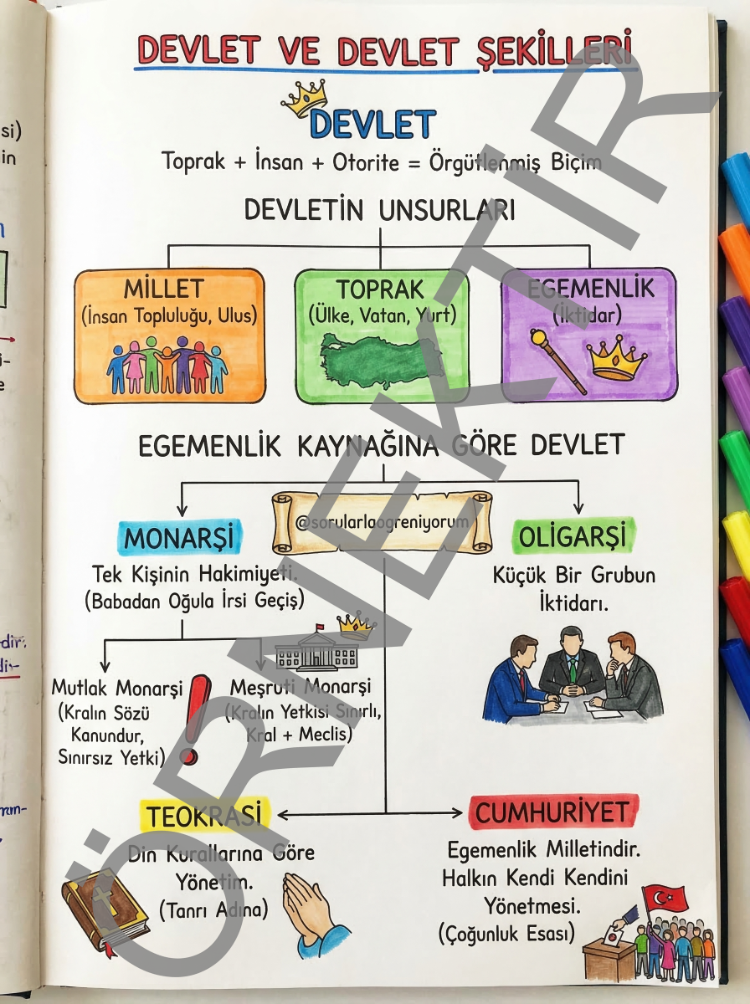 DEVLET VE DEVLET ŞEKİLLERİ
DEVLET
Toprak + İnsan + Otorite = Örgütlenmiş Biçim
DEVLETİN UNSURLARI
MİLLET
(İnsan Topluluğu, Ulus)
TOPRAK
(Ülke, Vatan, Yurt)
EGEMENLİK
(İktidar)
EGEMENLİK KAYNAĞINA GÖRE DEVLET
@sorularlaogreniyorum
MONARŞİ
Tek Kişinin Hakimiyeti.
(Babadan Oğula İrsi Geçiş)
OLİGARŞİ
Küçük Bir Grubun
İktidarı.
Mutlak Monarşi
(Kralın Sözü
Kanundur,
Sınırsız Yetki)
Meşruti Monarşi
(Kralın Yetkisi Sınırlı,
Kral + Meclis)
TEOKRASİ
Din Kurallarına Göre
Yönetim.
(Tanrı Adına)
CUMHURİYET
Egemenlik Milletindir.
Halkın Kendi Kendini
Yönetmesi.
(Çoğunluk Esası)
ÖRNEKTİR
si)
in